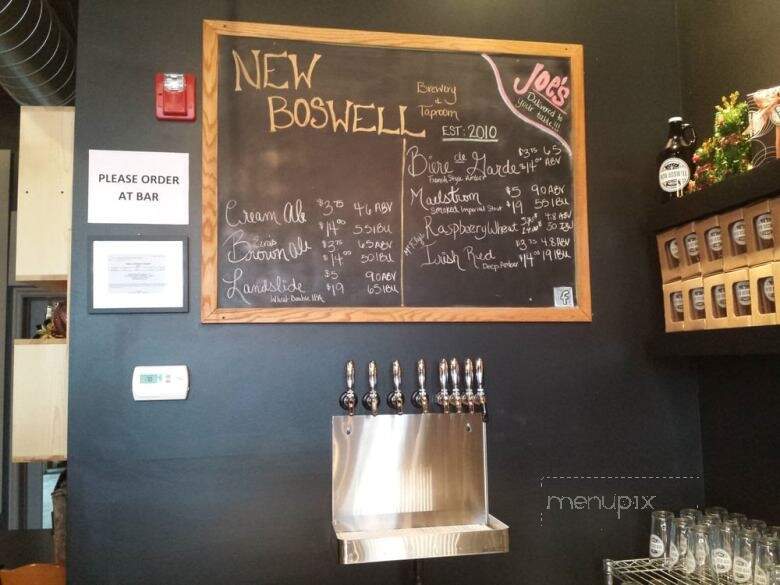 NEW
BOSWELL
Brewery
&
Taproom
EST: 2010
JOE'S
Delivered to
your table!!!
PLEASE ORDER
AT BAR
Cream Ale $3.75 4.6 ABV
$14.00 55 IBU
Brown Ale $3.75 6.5 ABV
$14.00 50 IBU
Landslide $5 9.0 ABV
Wheat-Double IPA $19 65 IBU
Bière de Garde $3.75 6.5
French Style Amber $14.00 ABV
Maelstrom $5 9.0 ABV
Smoked Imperial Stout $19 55 IBU
Raspberry Wheat 4.8 ABV
30 IBU
Irish Red $3.75 4.8 ABV
Deep Amber $14.00 19 IBU
NEW BOSWELL
menupix